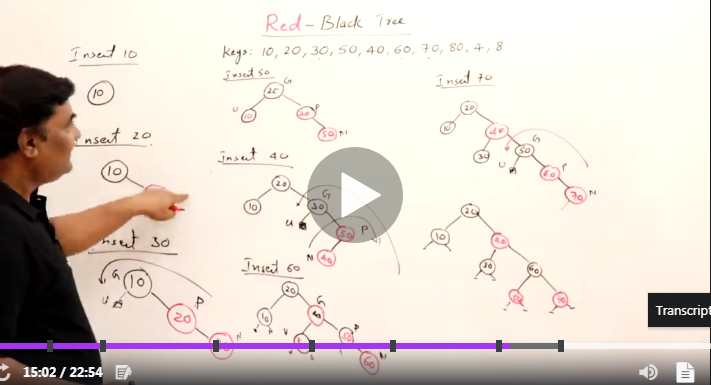 Red-Black Tree
Keys: 10, 20, 30, 50, 40, 60, 70, 80, 4, 8
Insert 10
10
nsert 20
10
Insert 30
G
10
U
P
20
N
Insert 50
G
20
U
10
P
30
N
50
Insert 40
20
G
10
30
U
50
P
N
40
Insert 60
20
G
10
40
U
P
50
N
60
Insert 70
20
10
40
G
30
50
U
P
60
N
70
20
10
40
60
70
Transcript
15:02 / 22:54